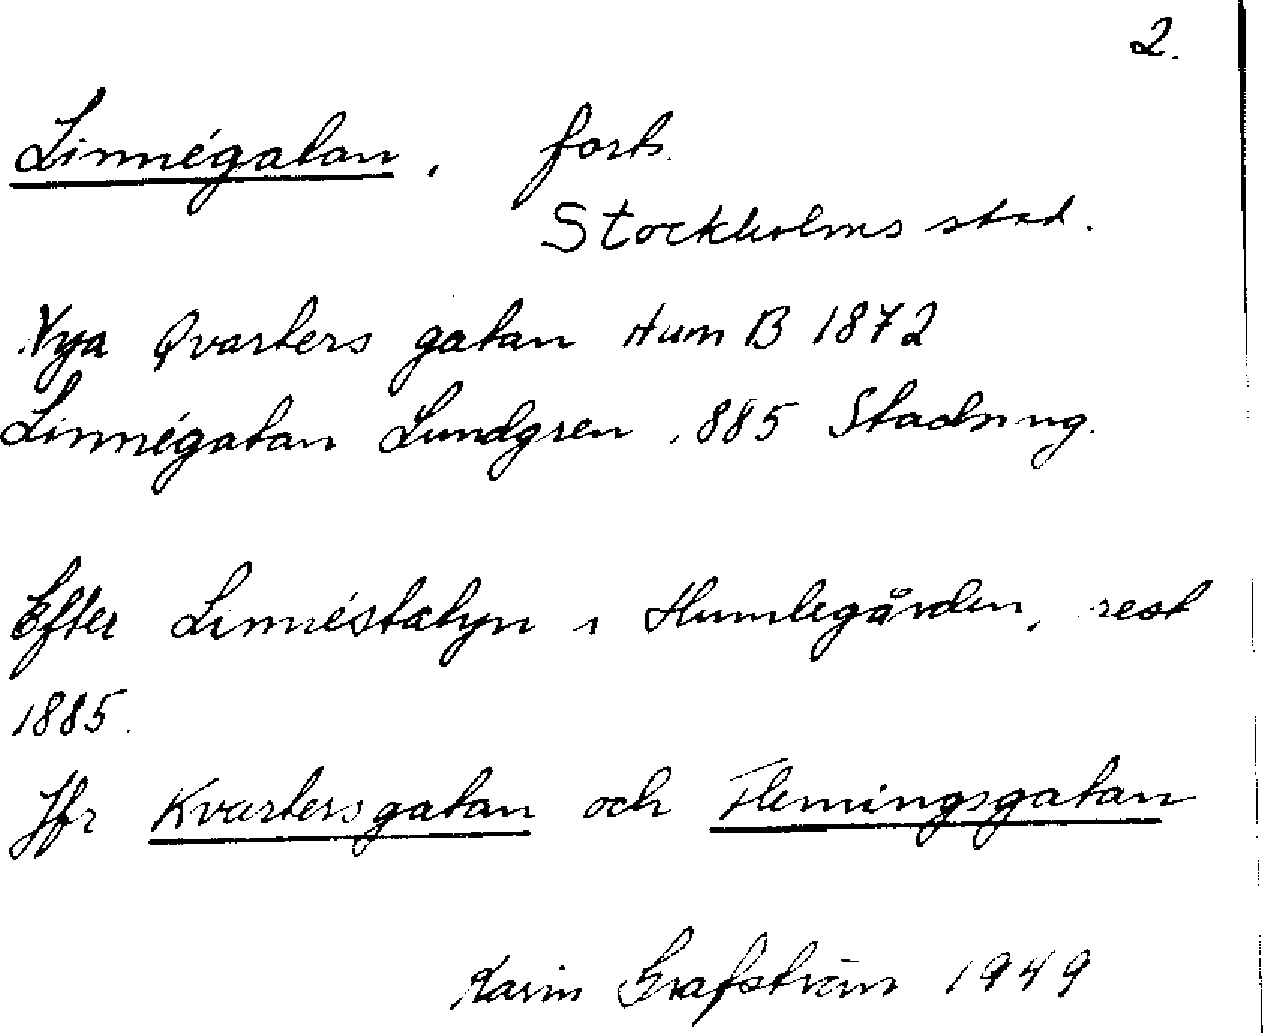 2.
Linnégatan, forts.
Stockholms stad.
Nya Qvarters gatan Hum B 1872
Linnégatan Lundgren 1885 Stadsing.
Efter Linnéstatyn i Humlegården, rest
1885.
Jfr Kvartersgatan och Flemingsgatan
Karin Grafström 1949